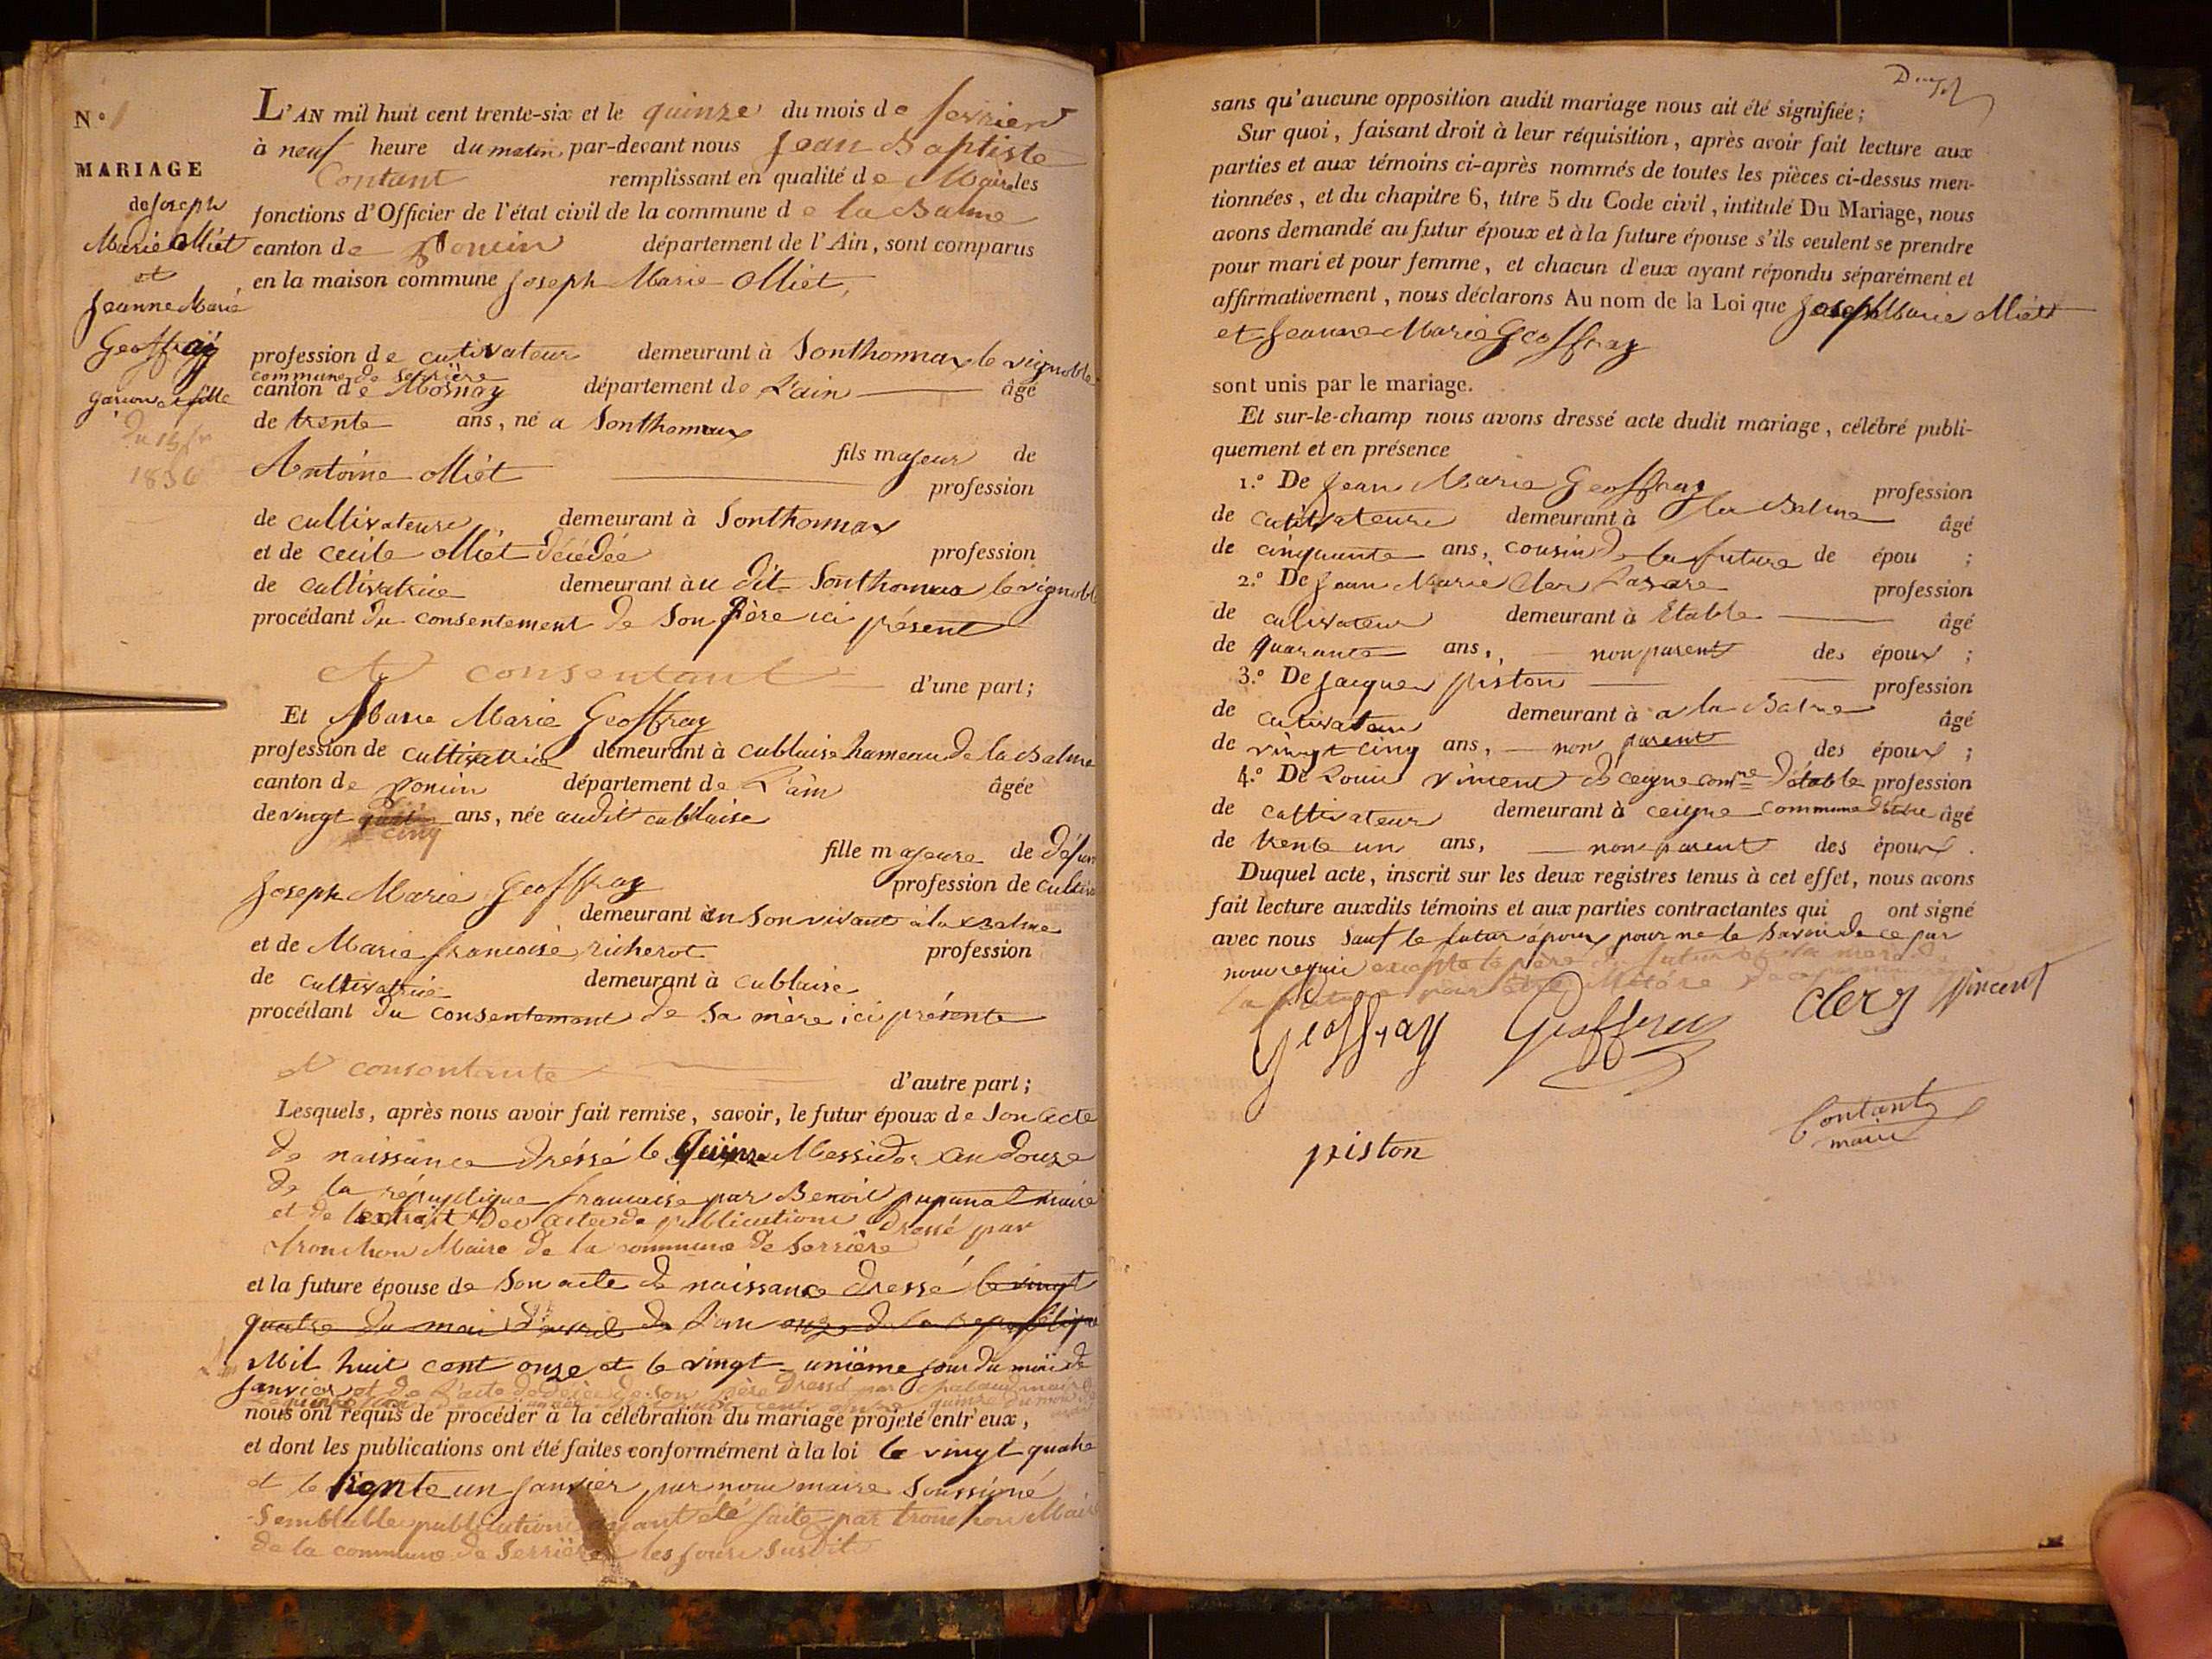 N.° 1
MARIAGE
de joseph
Marie Miét
et
Jeanne Marie
Geoffray
garcon et fille
1836
L'AN mil huit cent trente-six et le quinze du mois de fevrier
à neuf heure du matin par-devant nous Jean Baptiste
Contant remplissant en qualité de Maire les
fonctions d'Officier de l'état civil de la commune de la Balme
canton de poncin département de l'Ain, sont comparus
en la maison commune Joseph Marie Miét,
profession de cutivateur demeurant à Sonthonnax le vignoble
commune de Serrière
canton de département de L'ain âgé
de trente ans, né a Sonthonnax
fils majeur de
Antoine Miét
profession
de cultivateur demeurant à Sonthonnax
et de cecile Miét décédée profession
de cultivatrice demeurant àu dit Sonthonnax le vignoble
procédant du consentement de son père ici présent
et consentant d'une part;
Et Marie Geoffray
profession de cultivatrice demeurant à cublaise hameau de la Balme
canton de poncin département de L'ain âgée
de vingt cinq ans, née audit cublaise
fille majeure de
Joseph Marie Geoffray profession de
demeurant en son vivant à la Balme
et de Marie francoise richerot profession
de cultivatrice demeurant à cublaise
procédant du consentement de sa mère ici présente
et consentante d'autre part;
Lesquels, après nous avoir fait remise, savoir, le futur époux de Son acte
de naissance dressé le Quinze Messidor an douze
de la république francaise par Benoit maire
et de lextrait des actes de publications dressé par
tronchon Maire de la commune de Serrière
et la future épouse de Son acte de naissance dressé le vingt
quatre du mois d'avril de l'an onze de la republique
Mil huit cent onze et le vingt unième jour du mois de
janvier et de l'acte de décès de son père dressé par maire
nous ont requis de procéder à la célébration du mariage projeté entr'eux,
et dont les publications ont été faites conformément à la loi le vingt quatre
et le trente un janvier par nous maire soussigné
Semblable publication ayant été faite par tronchon Maire
de la commune de Serrière les jours susdit
sans qu'aucune opposition audit mariage nous ait été signifiée;
Sur quoi, faisant droit à leur réquisition, après avoir fait lecture aux
parties et aux témoins ci-après nommés de toutes les pièces ci-dessus men-
tionnées, et du chapitre 6, titre 5 du Code civil, intitulé Du Mariage, nous
avons demandé au futur époux et à la future épouse s'ils veulent se prendre
pour mari et pour femme, et chacun d'eux ayant répondu séparément et
affirmativement, nous déclarons Au nom de la Loi que Joseph Marie Miét
et Jeanne Marie Geoffray
sont unis par le mariage.
Et sur-le-champ nous avons dressé acte dudit mariage, célébré publi-
quement et en présence
1.° De Jean Marie Geoffray profession
de cutivateur demeurant à la Balme âgé
de cinquante ans, cousin de la future de épou ;
2.° De Jean Marie profession
de cutivateur demeurant à Etable âgé
de quarante ans, non parent des époux ;
3.° De jacques piston profession
de cutivateur demeurant à a la Balme âgé
de vingt cinq ans, non parent des époux ;
4.° De Louis vincent de ceigne détable profession
de cultivateur demeurant à ceigne commune âgé
de trente un ans, non parent des époux .
Duquel acte, inscrit sur les deux registres tenus à cet effet, nous avons
fait lecture auxdits témoins et aux parties contractantes qui ont signé
avec nous Sauf le futur époux pour ne le savoir de ce par
nous requis excepté le père du futur et la mère de
la
Geoffray Geoffray clerg vincent
piston
Contant
maire